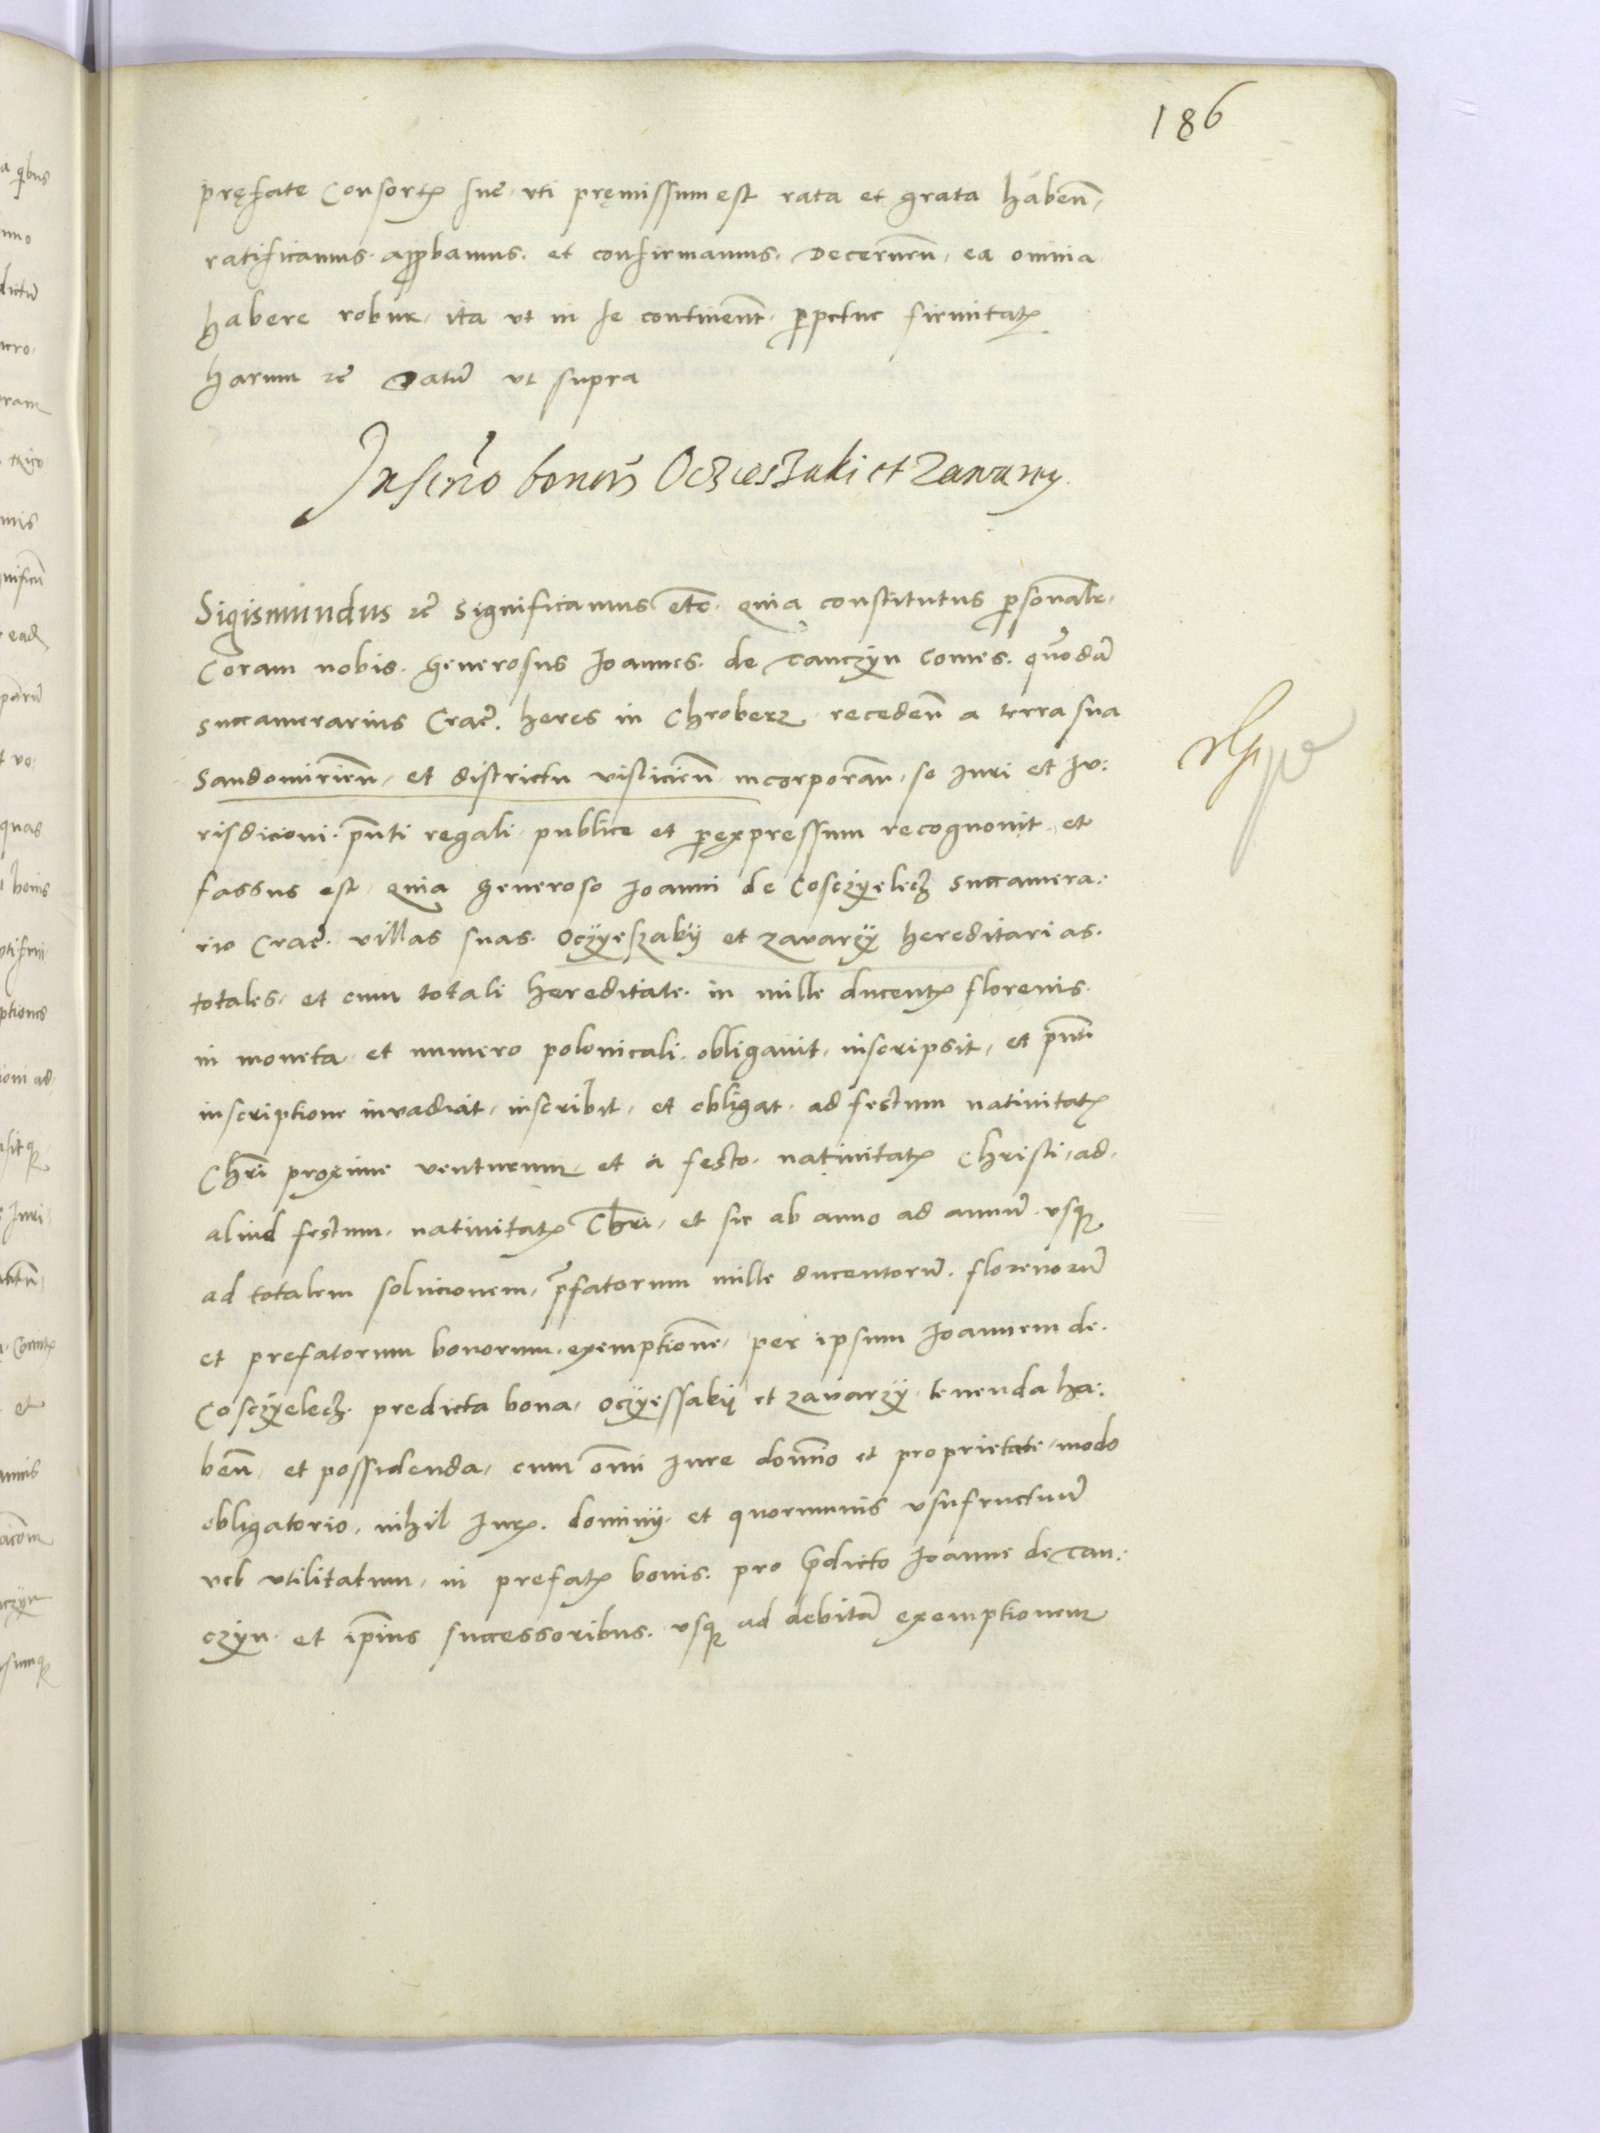 186
pręfate Consortꝭ sue uti pręmissum est rata et grata habeñ,
ratificamus approbamus. et confirmamus. Decerneñ, ea omnia
habere robur, ita ut in se continent perpetue firmitatꝭ
harum etc Datũ ut supra
Inscrō bonorũ Oczieszaki et Zawarzy.
Sigismundus etc significamus etc. quia constitutus personalr.
Coram nobis. Generosus Ioannes. de Tanczÿn Comes. quondã
succamerarius Crac̃. heres in Chroberz recedeñ a terra sua
Sandomirieñ, et districtu visliciẽn incorporañ, se Iuri et Iu:
risdicioni. pñti regali publice et per expressum recognovit, et
fassus est, quia Generoso Ioanni de Cosczÿelecz succamera:
rio Crac̃. villas suas. Oczÿeszakÿ et Zavarzÿ hereditarias.
totales, et cum totali hereditate. in mille ducentꝭ florenis.
in moneta et numero polonicali. obligavit, inscripsit, et pñti
inscriptione invadiat, inscribit, et obligat. ad festum nativitatꝭ
Chri proxime venturum, et a festo. nativitatꝭ Christi, ad.
aliud festum. nativitatꝭ Chri, et sic ab anno ad annũ usqꝫ
ad totalem solucionem, prefatorum mille ducentorũ. florenorũ
et prefatorum bonorum. exemptione, per ipsum Ioannem de.
Cosczÿelecz. predicta bona, Oczÿessakÿ et Zavarzÿ tenenda ha:
beñ, et possidenda, cum om̃i Iure dominio et proprietate, modo
obligatorio, nihil Iurꝭ. dominij, et quorumvis usufructuũ
vel utilitatum, in prefatꝭ bonis. pro predicto Ioanne de Tan:
czÿn. et ip̃ius successoribus. usqꝫ ad debitã exemptionem